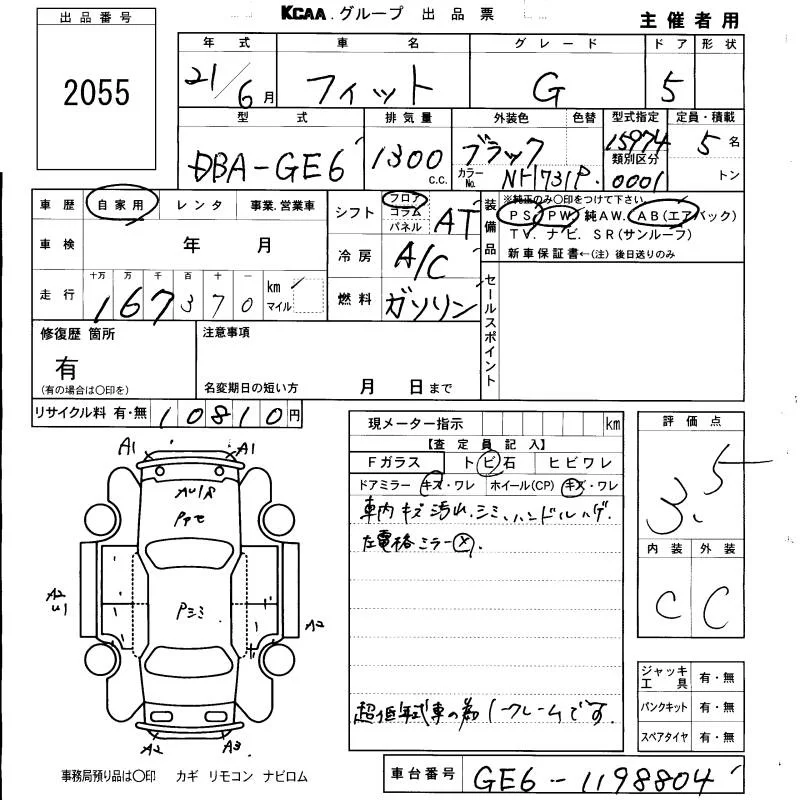 出品番号
2055
KCAA.グループ 出品票
主催者用
年式 車名 グレード ドア 形状
21/6月 フィット G 5
型式 排気量 外装色 色替 型式指定 定員・積載
DBA-GE6 1300 c.c. ブラック 15974 5 名
カラーNo. NH731P. 類別区分 0001 トン
車歴 自家用 レンタ 事業.営業車
車検 年 月
走行 十万 万 千 百 十 一 km マイル
167370
シフト フロア コラム パネル AT
冷房 A/C
燃料 ガソリン
装備品 ※純正のみ〇印をつけて下さい。
PS PW 純AW. AB(エアバック)
TV. ナビ. SR(サンルーフ)
新車保証書←(注)後日送りのみ
セールスポイント
修復歴 箇所
有
(有の場合は〇印を)
注意事項
名変期日の短い方 月 日まで
リサイクル料 有・無 10810円
現メーター指示 km
【査定員記入】
Fガラス トビ石 ヒビワレ
ドアミラー キズ・ワレ ホイール(CP) キズ・ワレ
車内キズ汚れ、シミ、ハンドルハゲ.
左電格ミラー×.
超低年式車の為ノークレームです.
評価点
3.5
内装 外装
C C
A1 A1
AU1
A2
U1
Pシミ
A2
A2 A3
ジャッキ工具 有・無
パンクキット 有・無
スペアタイヤ 有・無
事務局預り品は〇印 カギ リモコン ナビロム
車台番号 GE6-1198804